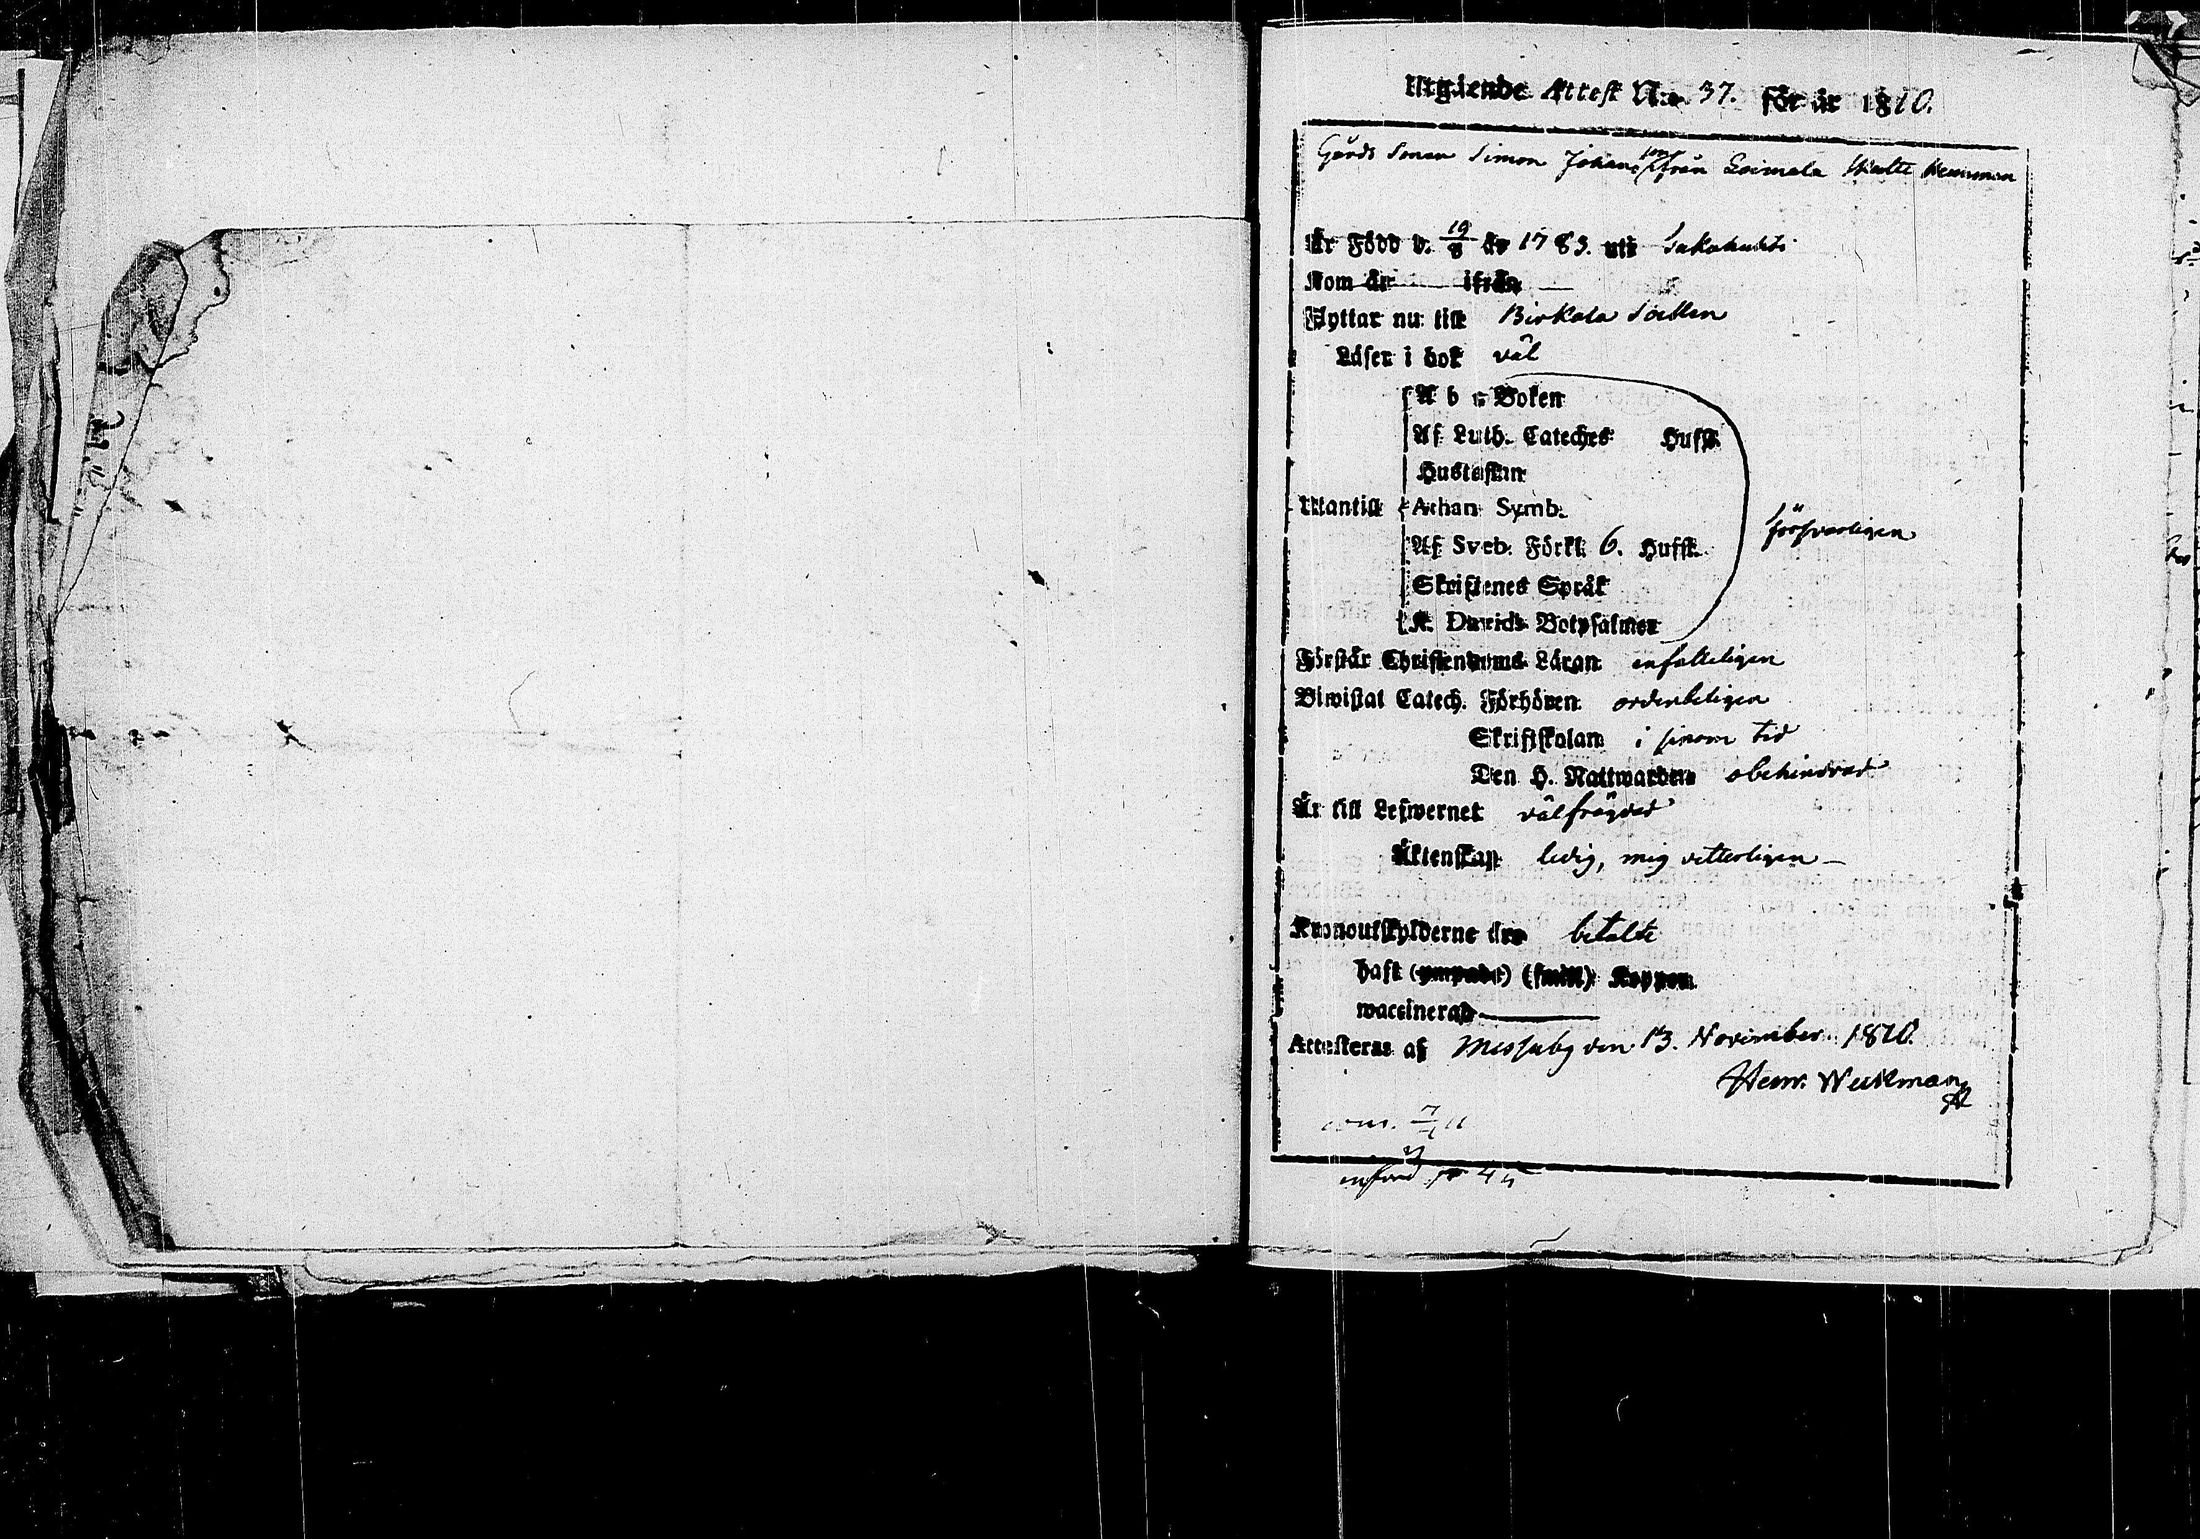 Utgående Attest N:o 37. för år 1810.
Gårds Sonen Simon Johans son ifrån Loimala
Är Född d. 19/8 år 1783. uti
Kom år ifrån
Flyttar nu till Birkala Socken
Läser i bok väl
A b c Boken
Af Luth. Cateches Hufst.
Hustaflan
Utantill Athan. Symb.
Af Sveb. Förkl. 6. Hufst. försvarligen
Skriftenes Språk
K. Davids Botpsalmer
Förstår Christendoms Läran enfalleligen
Biwistat Catech. Förhören ordenteligen
Skriftskolan i sinom tid
Den H. Nattwarden obehindrad
Är till Lefwernet välfrägdad
Äktenskap ledig, mig vetterligen
Kronoutskylderne äro betalte
haft (ympade) (smitt) Koppor
waccinerad
Attesteras af Messuby den 13. November 1810.
Henr. Weckman